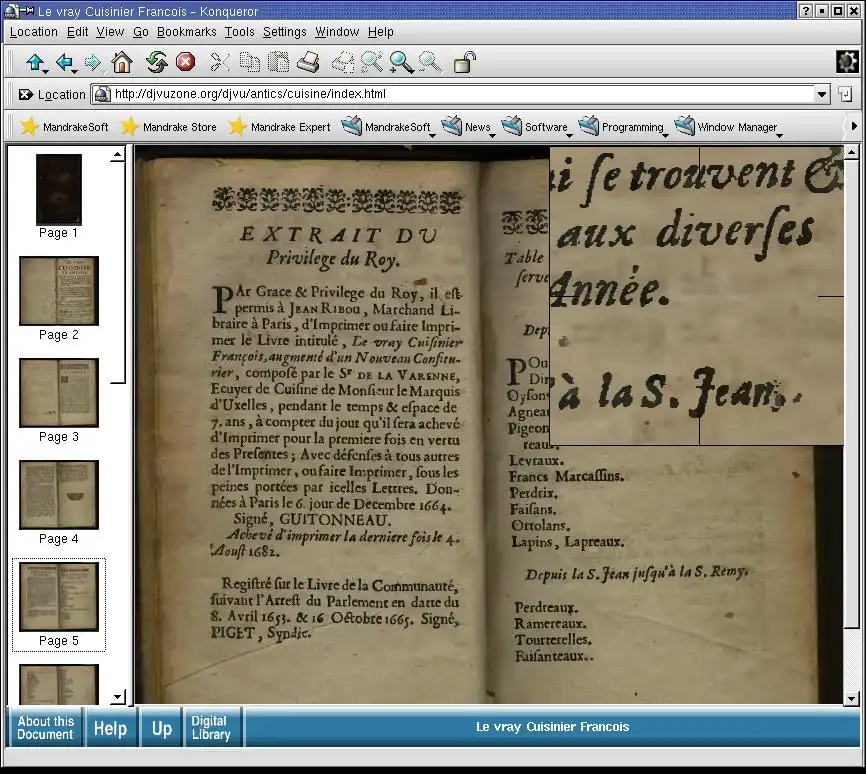 Le vray Cuisinier Francois - Konqueror
Location Edit View Go Bookmarks Tools Settings Window Help
Location http://djvuzone.org/djvu/antics/cuisine/index.html
MandrakeSoft Mandrake Store Mandrake Expert MandrakeSoft News Software Programming Window Manager
Page 1
Page 2
Page 3
Page 4
Page 5
EXTRAIT DU
Privilege du Roy.
PAr Grace & Privilege du Roy, il eſt
permis à JEAN RIBOU, Marchand Li-
braire à Paris, d'Imprimer ou faire Impri-
mer le Livre intitulé, Le vray Cuiſinier
François, augmenté d'un Nouveau Confitu-
rier, compoſé par le Sr DE LA VARENNE,
Ecuyer de Cuiſine de Monſieur le Marquis
d'Uxelles, pendant le temps & eſpace de
7. ans, à compter du jour qu'il ſera achevé
d'Imprimer pour la premiere fois en vertu
des Preſentes; Avec défenſes à tous autres
de l'Imprimer, ou faire Imprimer, ſous les
peines portées par icelles Lettres. Don-
nées à Paris le 6. jour de Decembre 1664.
Signé, GUITONNEAU.
Achevé d'imprimer la derniere fois le 4.
Aouſt 1682.
Regiſtré ſur le Livre de la Communauté,
ſuivant l'Arreſt du Parlement en datte du
8. Avril 1653. & 16 Octobre 1665. Signé,
PIGET, Syndic.
Table
ſerve
Dep
POu
Din
Oyſons
Agneau
Pigeon
reaux
Levraux.
Francs Marcaſſins.
Perdrix.
Faiſans.
Ortolans.
Lapins, Lapreaux.
Depuis la S. Jean juſqu'à la S. Remy.
Perdreaux.
Ramereaux.
Tourterelles.
Faiſanteaux.
i ſe trouvent &
aux diverſes
Année.
à la S. Jean.
About this Document Help Up Digital Library Le vray Cuisinier Francois